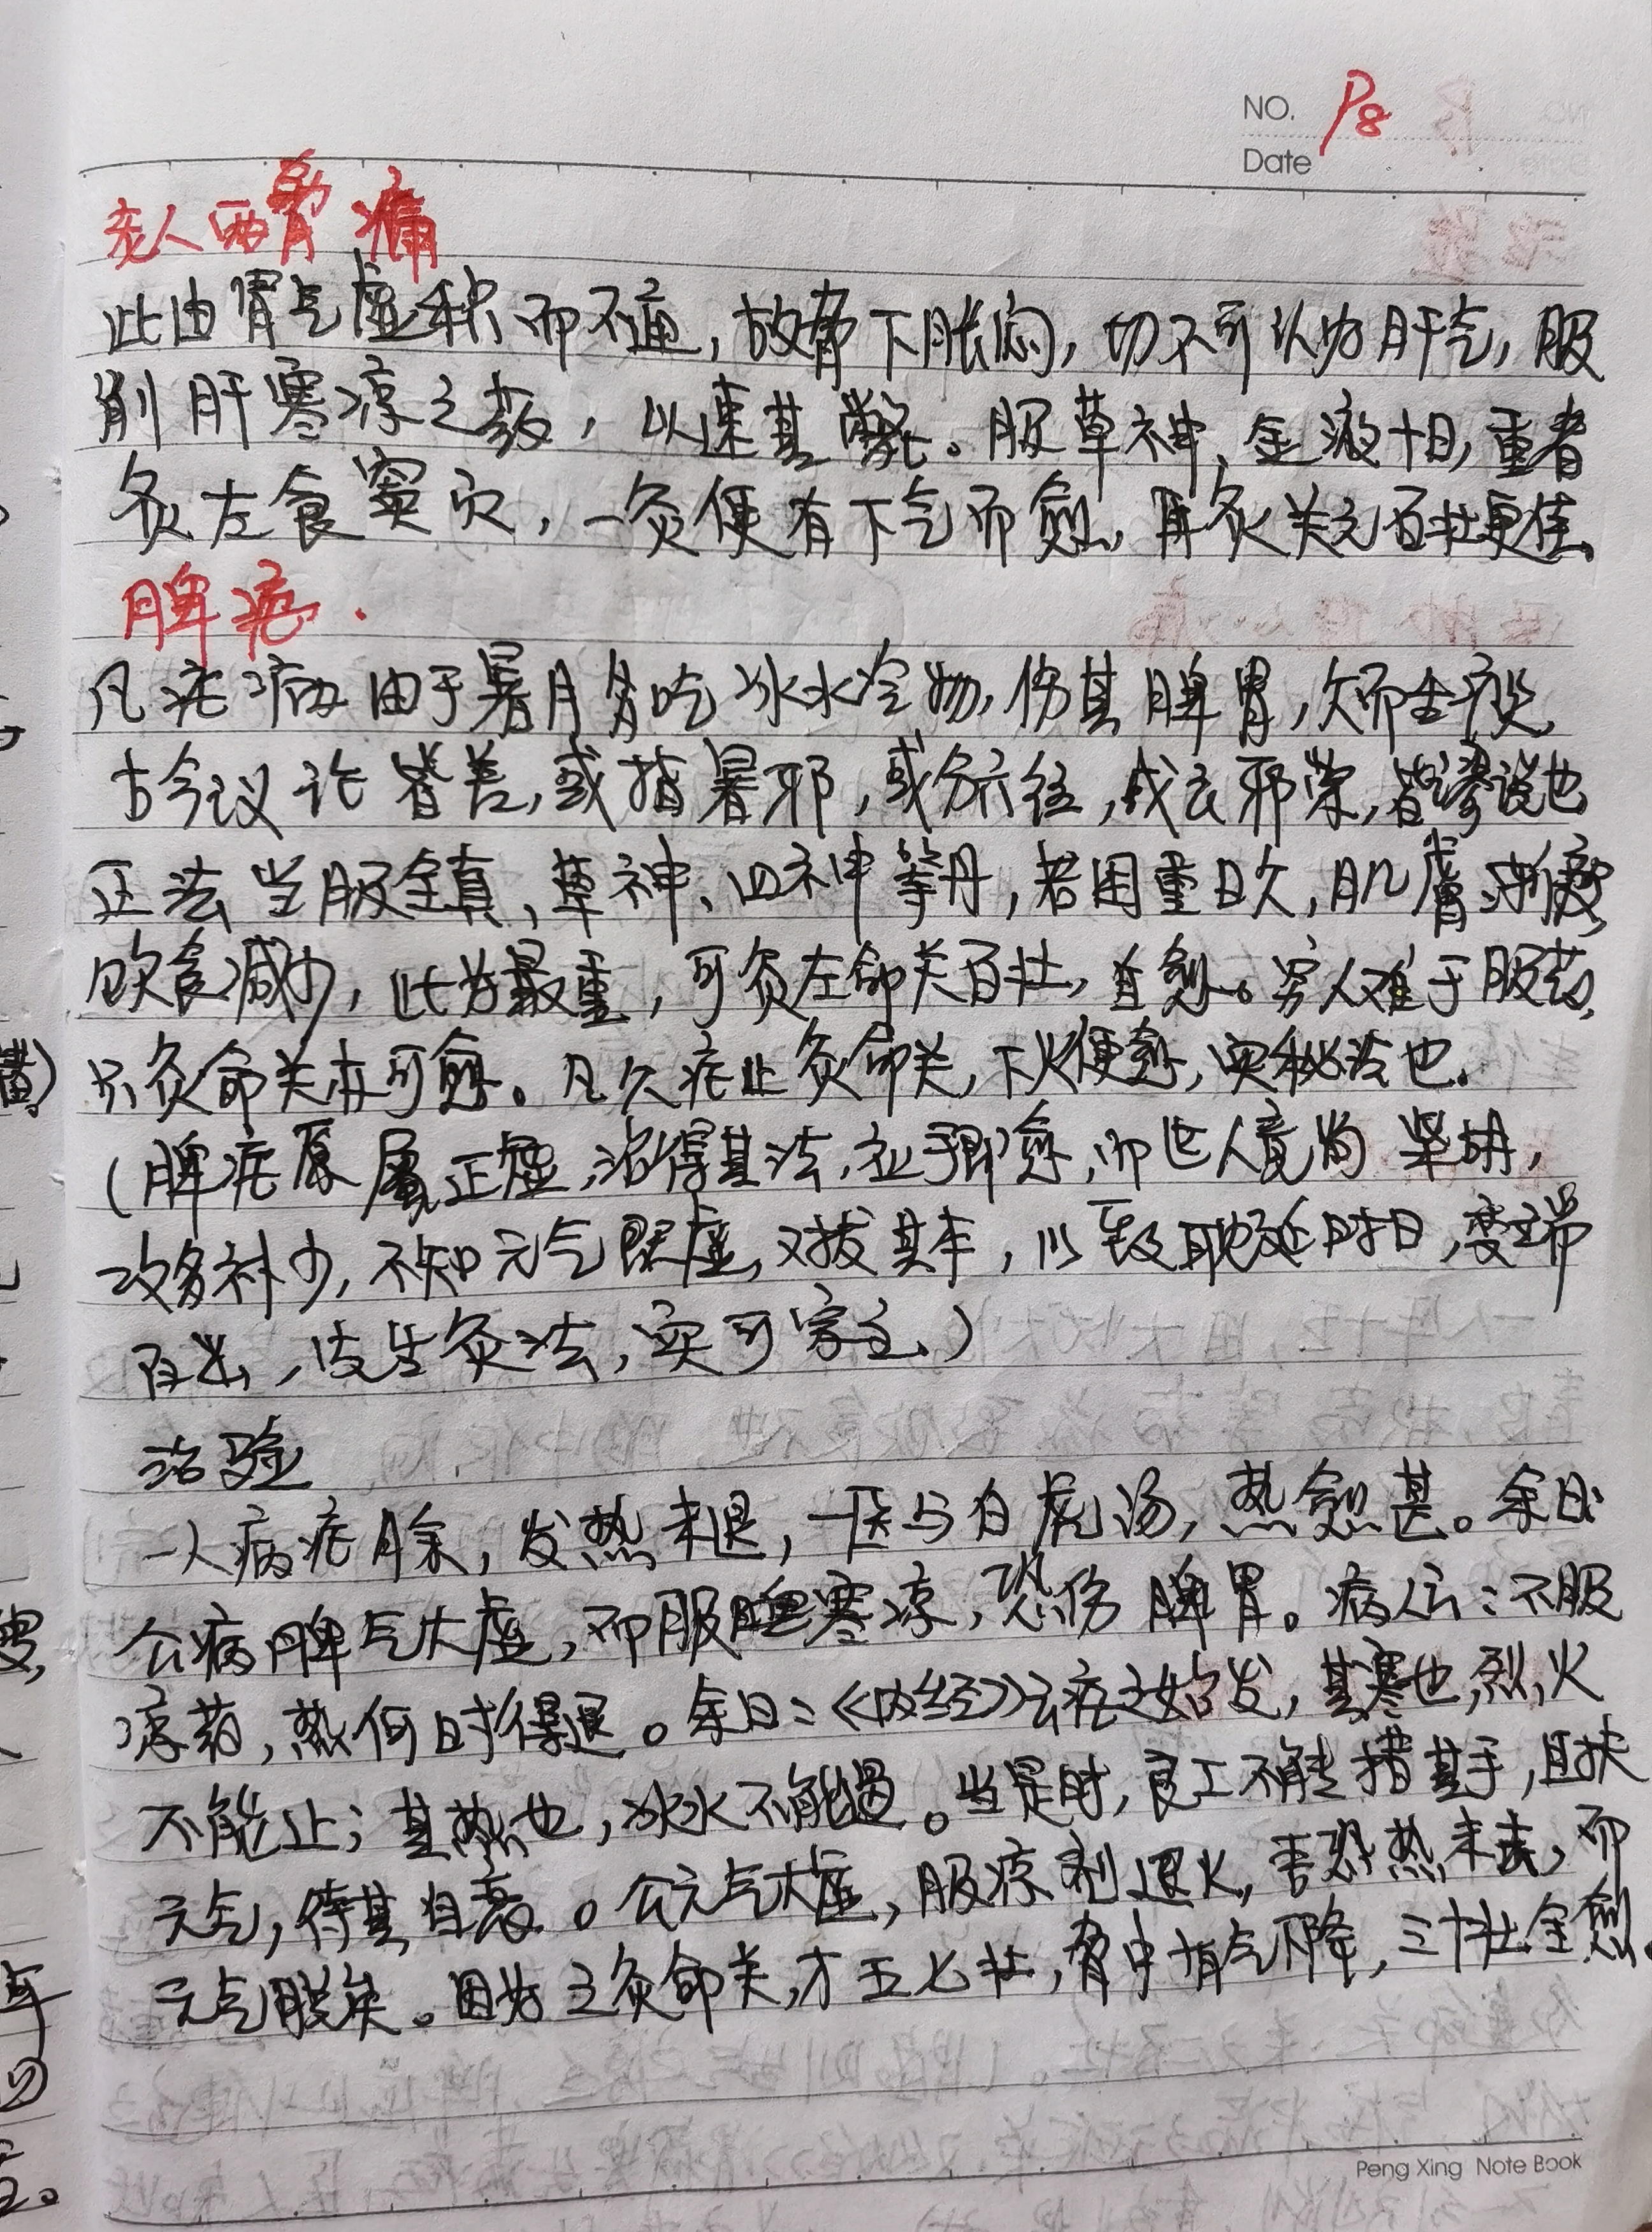 NO. P8
Date
老人两胁痛
此由胃气虚积而不通，故胁下胀闷，切不可认为肝气，服
削肝寒凉之药，以速其毙。服草神、金液十日，重者
灸左食窦穴，一灸便有下气而愈，再灸关元百壮更佳。
脾疟．
凡疟病由于暑月多吃冰水冷物，伤其脾胃，久而生痰，
古今议论皆差，或指暑邪，或分六经，或云邪祟，皆谬说也
正法当服全真、草神、四神等丹，若困重日久，肌肤渐瘦
饮食减少，此为最重，可灸左命关百壮，自愈。穷人难于服药，
只灸命关亦可愈。凡久疟止灸命关，下火便愈，实秘法也．
（脾疟原属正虚，治得其法，应手即愈，而世人竟尚柴胡，
攻多补少，不知元气既虚，又拔其本，以致耽延时日，变端
百出，先生灸法，实可宗主、）
治验
一人病疟月余，发热未退，一医与白虎汤，热愈甚。余曰
公病脾气大虚，而服寒凉，恐伤脾胃。病人云：不服
凉药，热何时得退。余曰：《内经》云疟之始发，其寒也，烈火
不能止；其热也，冰水不能遏。当是时，良工不能措其手，且扶
元气，待其自衰。公元气大虚，服凉剂退火，吾恐热未去，而
元气脱矣。因为之灸命关，才五七壮，胁中有气下降，三十壮全愈。
Peng Xing Note Book